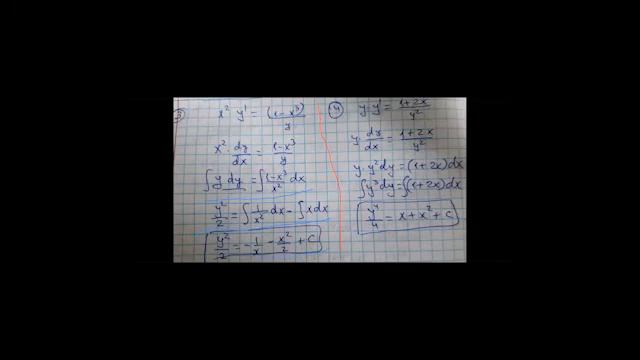 3) x² y' = (1-x³)/y
x² dy/dx = (1-x³)/y
∫ y dy = ∫ (1-x³)/x² dx
y²/2 = ∫ 1/x² dx - ∫ x dx
y²/2 = -1/x - x²/2 + C
4) y · y' = (1+2x)/y²
y · dy/dx = (1+2x)/y²
y · y² dy = (1+2x) dx
∫ y³ dy = ∫ (1+2x) dx
y⁴/4 = x + x² + C